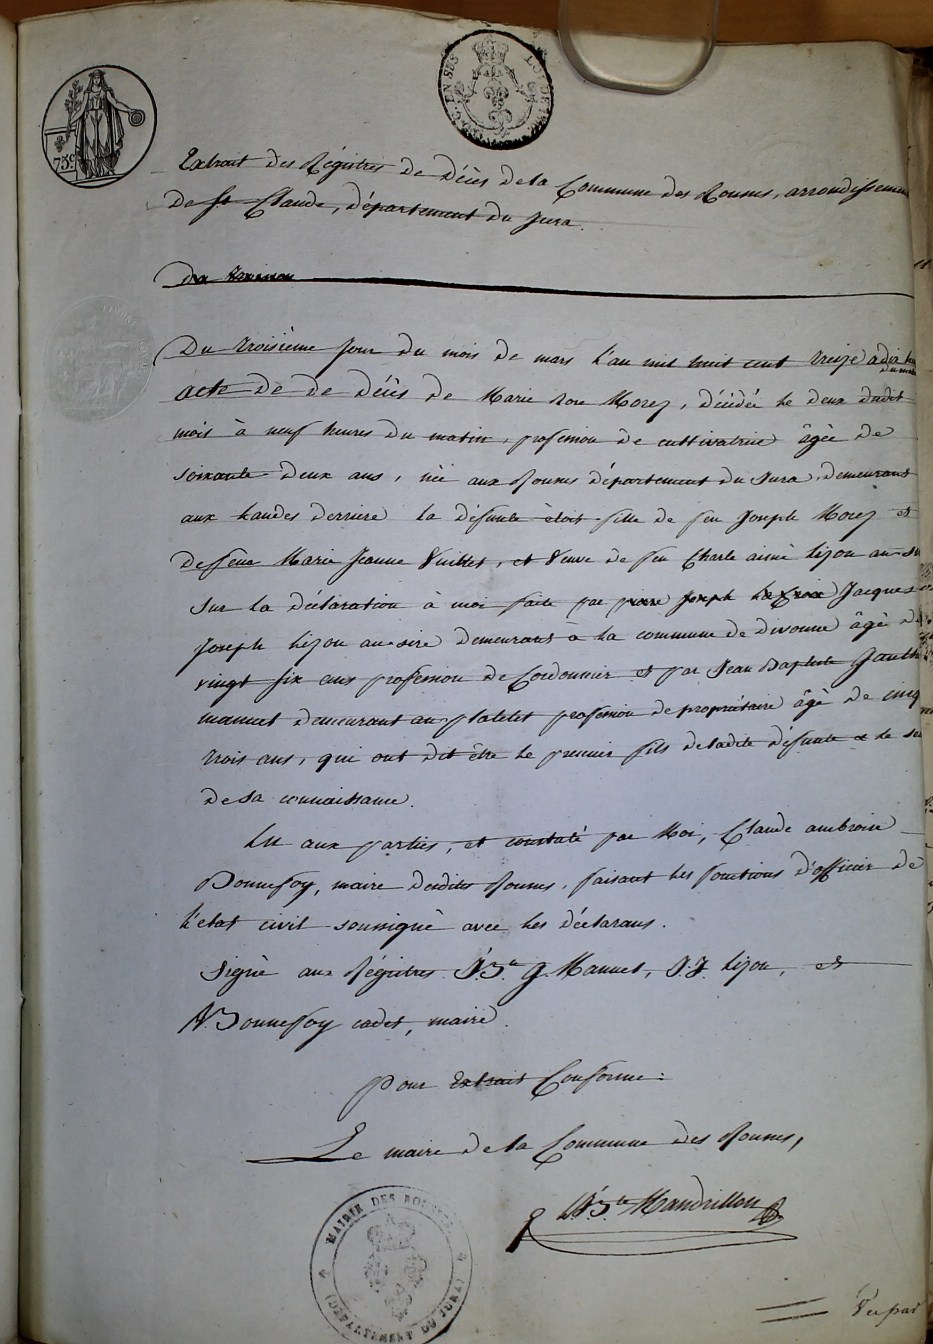 75c
Extrait des Régistres de décès de la Commune des Rousses, arrondissement
De St Claude, département du Jura.
Du troisième jour du mois de mars l'an mil huit cent treize à dix
acte de de décès de Marie Rose Morez, décédée le deux dudit
mois à neuf heures du matin, profession de cultivatrice âgée de
soixante deux ans, née aux Rousses département du Jura, demeurant
aux Landes derriere la défunte étoit fille de feu Joseph Morez et
de feue Marie Jeanne Vuillet, et Veuve de feu Charle aimé Lizon
Sur la déclaration à moi faite par Jacques
Joseph Lizon au sire demeurant à la commune de divonne âgé de
vingt six ans profession de Cordonnier et par Jean Baptiste Gauthi
manuet demeurant au platelet profession de propriétaire âgé de cinq
trois ans, qui ont dit être le premier fils de ladite défunte et le
de sa connaissance.
Lu aux parties, et constaté par Moi, Claude ambroise
Bonnefoy, maire desdites Rousses, faisant les fonctions d'officier de
l'état civil soussigné avec les déclarans.
Signé aux Régistres J.Bte G. Manuet, J.J. Lizon, et
A. Bonnefoy cadet, maire.
Pour Extrait Conforme:
Le maire de la Commune des Rousses,
Mandrillon
MAIRIE DES ROUSSES
(DÉPARTEMENT DU JURA)